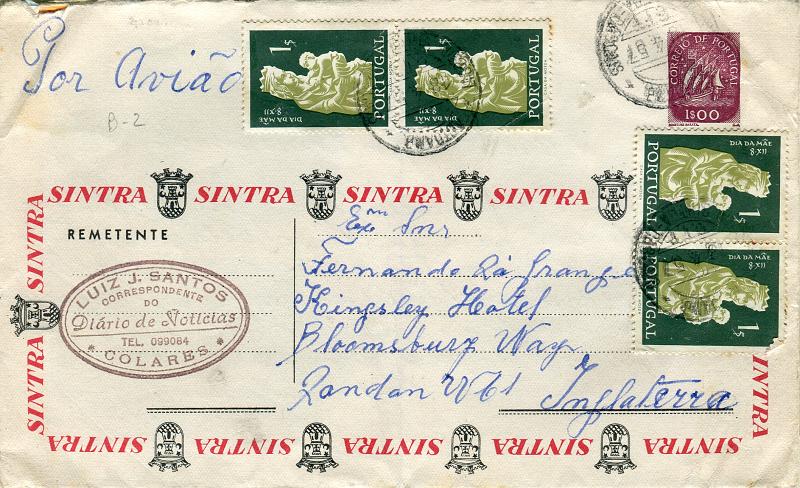 Por Avião
B-2
1$
PORTUGAL
DIA DA MÃE
8·XII
1$
PORTUGAL
DIA DA MÃE
8·XII
CORREIO DE PORTUGAL
1$00
DIA DA MÃE
8·XII
PORTUGAL
1$
DIA DA MÃE
8·XII
PORTUGAL
1$
SINTRA SINTRA SINTRA SINTRA
SINTRA
SINTRA
SINTRA
REMETENTE
LUIZ J. SANTOS
CORRESPONDENTE
DO
Diário de Notícias
TEL. 099084
* COLARES *
Exmo Snr
Fernando
Kingsley Hotel
Bloomsbury Way
London WC1
Inglaterra
SINTRA
SINTRA SINTRA SINTRA SINTRA SINTRA